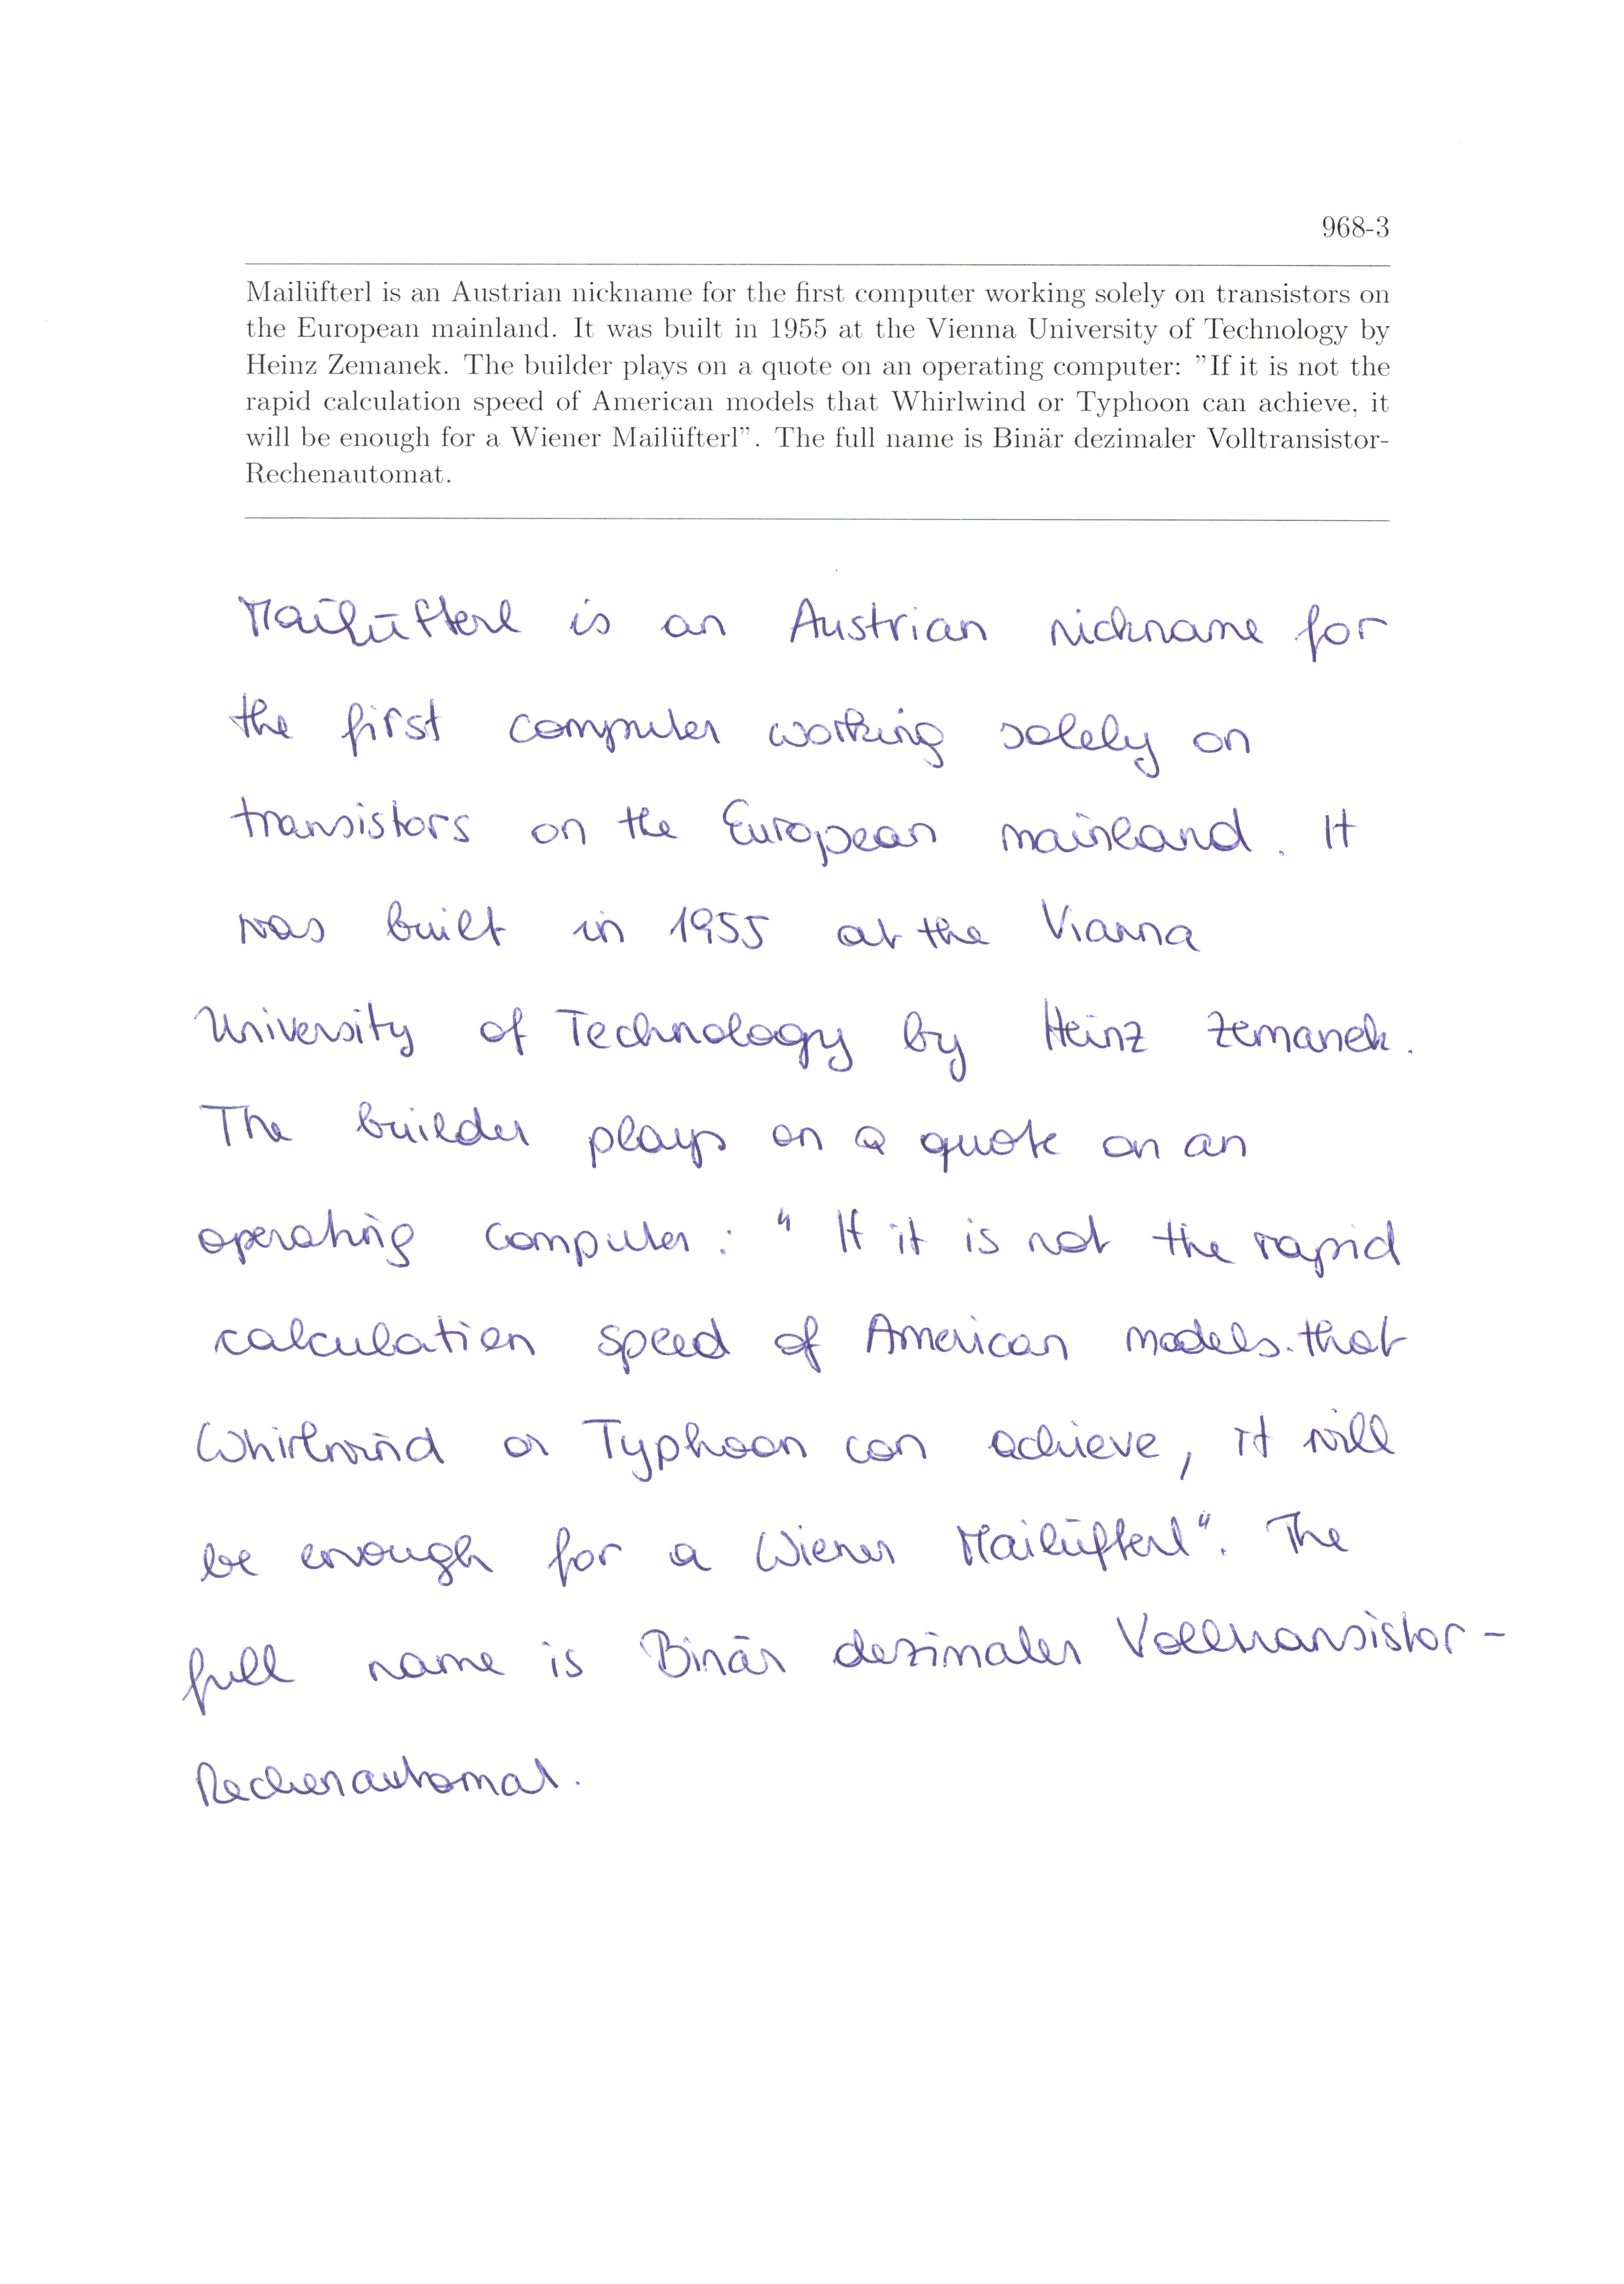 968-3
Mailüfterl is an Austrian nickname for the first computer working solely on transistors on
the European mainland. It was built in 1955 at the Vienna University of Technology by
Heinz Zemanek. The builder plays on a quote on an operating computer: ”If it is not the
rapid calculation speed of American models that Whirlwind or Typhoon can achieve, it
will be enough for a Wiener Mailüfterl”. The full name is Binär dezimaler Volltransistor-
Rechenautomat.
Mailüfterl is an Austrian nickname for
the first computer working solely on
transistors on the European mainland. It
was built in 1955 at the Vianna
University of Technology by Heinz Zemanek.
The builder plays on a quote on an
operating computer: " If it is not the rapid
calculation speed of American models that
Whirlwind or Typhoon can achieve, it will
be enough for a Wiener Mailüfterl". The
full name is Binär dezimaler Volltransistor-
Rechenautomat.